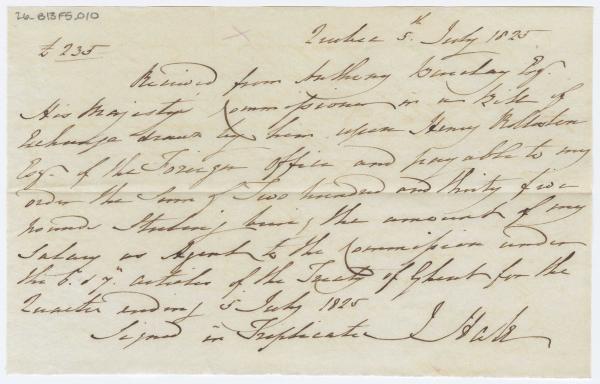 26-B13F5.010
Quebec 5th July 1825
£ 235
Received from Anthony Barclay Esq.
His Majestys Commissioner in a Bill of
Exchange drawn by him upon Henry Rolleston
Esq. of the Foreign Office and payable to my
order the Sum of Two hundred and thirty five
pounds Sterling being the amount of my
Salary as Agent to the Commission under
the 6. & 7. articles of the Treaty of Ghent for the
Quarter ending 5 July 1825
Signed in Triplicate J Hale